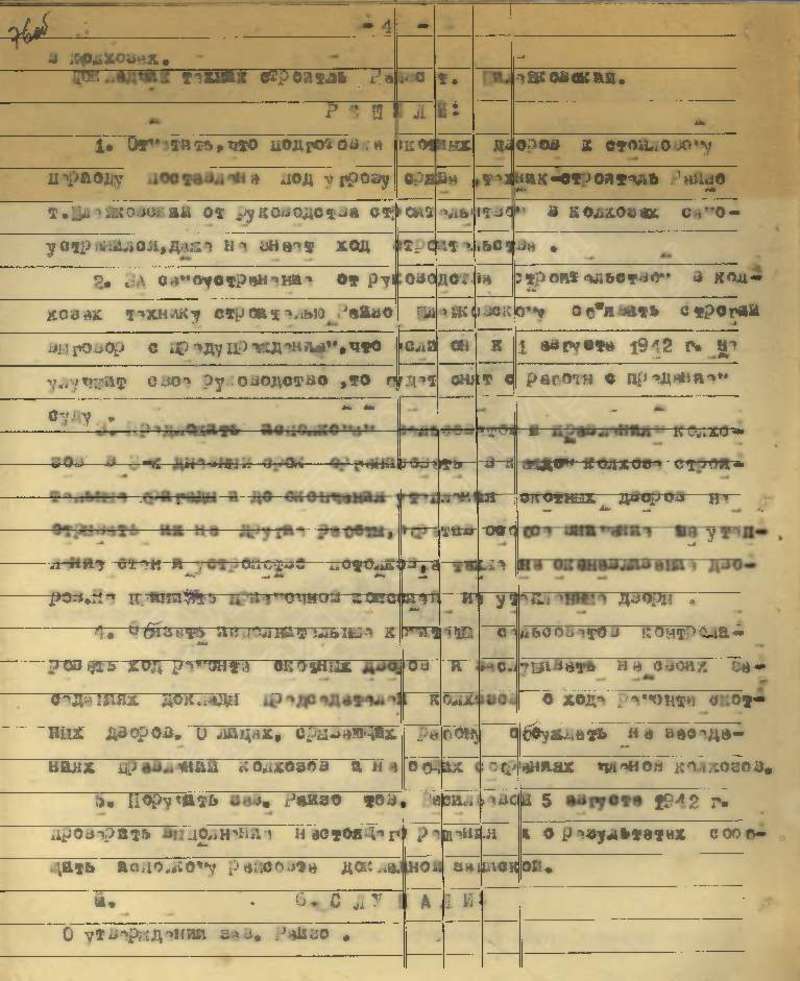 76об
- 4 -
в колхозах.
Докладчик техник строитель Райзо т.
Р Е Ш И Л И:
1. Отметить, что подготовка скотных дворов к стойловому
периоду поставлена под угрозу срыва, техник-строитель Райзо
т. от руководства строительством в колхозах само-
устранился, даже не знает ход строительства .
2. За самоустранение от руководства строительством в кол-
хозах технику строителю Райзо об"явить строгий
выговор с предупреждением, что если он к 1 августа 1942 г. не
улучшит свое руководство ,то будет снят с работы с преданием
суду .
3. Предложить исполкомам сельсоветов и правлениям колхо-
зов в дневный срок организовать в каждом колхозе строи-
тельные бригады и до окончания утепления скотных дворов не
отрывать их на другие работы, обратив особое внимание на утеп-
ление стен и устройство потолков, а также на дво-
ров. Не принимать приемочной комиссии не утепленные дворы .
4. Обязать исполнительные комитеты сельсоветов контроли-
ровать ход ремонта скотных дворов и заслушивать на своих за-
седаниях доклады председателей колхозов о ходе ремонта скот-
ных дворов. О лицах, срывающих работу обсуждать на заседа-
ниях правлений колхозов и на общих собраниях членов колхозов.
5. Поручить зав. Райзо тов. 5 августа 1942 г.
проверить выполнение настоящего решения и о результатах сооб-
щить исполкому райсовета докладной запиской.
6. С Л У Ш А Л И:
О утверждении зав. Райзо .